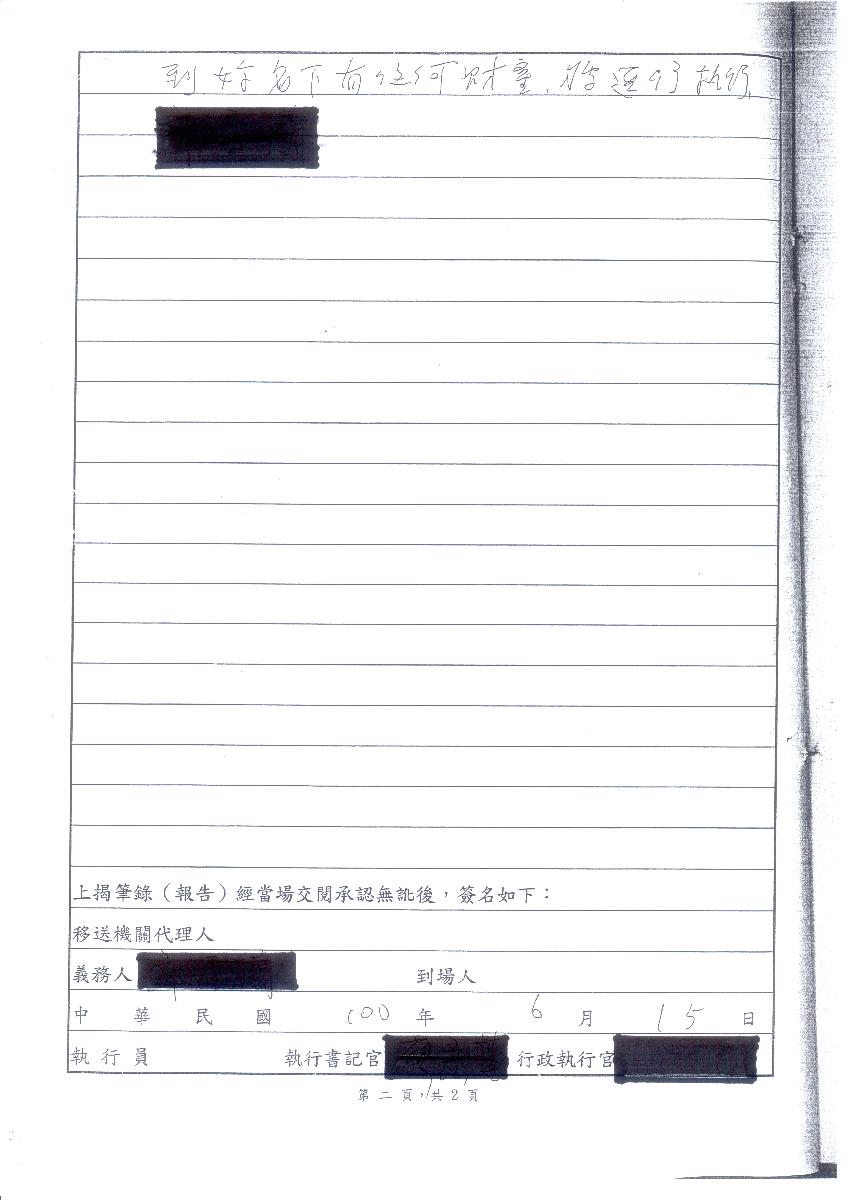 到她名下有任何財產,
上揭筆錄（報告）經當場交閱承認無訛後，簽名如下：
移送機關代理人
義務人 到場人
中華民國 100 年 6 月 15 日
執行員 執行書記官 行政執行官
第二頁，共2頁